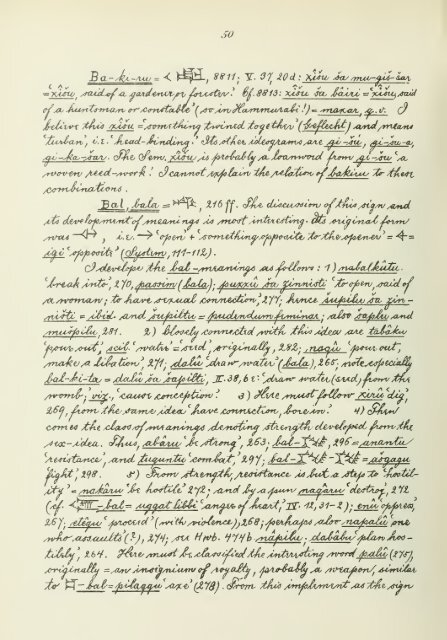 50
Ba-ki-ru = 8811; V. 37, 20d: xîšu ša mu-giš-šar
= 'xîšu, said of a gardener or forester.' Cf. 8813: xîšu ša bâiri = 'xîšu, said
of a huntsman or constable' (so in Hammurabi!) = maxar, q.v. I
believe this xîšu = 'something twined together' (Geflecht) and means
'turban', i.e. 'head-binding.' Its other ideograms are gi-šú, gi-šu-a,
gi-ka-šar. The Sem. xîšu is probably a loanword from gi-šu 'a
woven reed-work.' I cannot explain the relation of bakiru to these
combinations.
Bal, bala = 216 ff. The discussion of this sign and
its development of meanings is most interesting. Its original form
was i.e. 'open' + 'something opposite to the opener' =
igi 'opposite' (System, 111-112).
I develope the bal-meanings as follows: 1) nabalkûtu
'break into', 270, (bala); puxxû ša zinništi 'to open, said of
a woman; to have sexual connection', 277; hence šupilu ša zin-
ništi = ibid. and šupiltu = pudendum feminae; also šaplu and
mušpilu, 281. 2) Closely connected with this idea are tabâku
'pour out', scil. 'water' = 'seed', originally, 282; naqû 'pour out,
make a libation', 271; dalû 'draw water' (bala), 265; note especially
bal-ki-ta = dalû ša šaplti, II. 38, 6e: 'draw water (seed) from the
womb'; viz., 'cause conception'. 3) Here must follow xirû 'dig',
259, from the same idea 'have connection, bore in'. 4) Then
comes the class of meanings denoting strength developed from the
sex-idea. Thus, abâru 'be strong', 253; bal- 296 = anantu
'resistance', and tuquntu 'combat', 297; bal- = ašgagu
'fight', 298. 5) From strength, resistance is but a step to 'hostil-
ity' = makâru 'be hostile' 272; and by a pun nagâru 'destroy', 272
(cf. -bal = uggat libbi 'anger of heart', IV. 12, 31-2); enû 'oppress',
257; etêqu 'proceed (with violence), 258; perhaps also napalû 'one
who assaults (?), 274; see Hwb. 474b nâpilu; dabâbu 'plan hos-
tilely', 264. Here must be classified the interesting word palû (275),
originally = an insignium of royalty, probably a weapon, similar
to -bal = pilaqqu 'axe' (278). From this implement as the sign